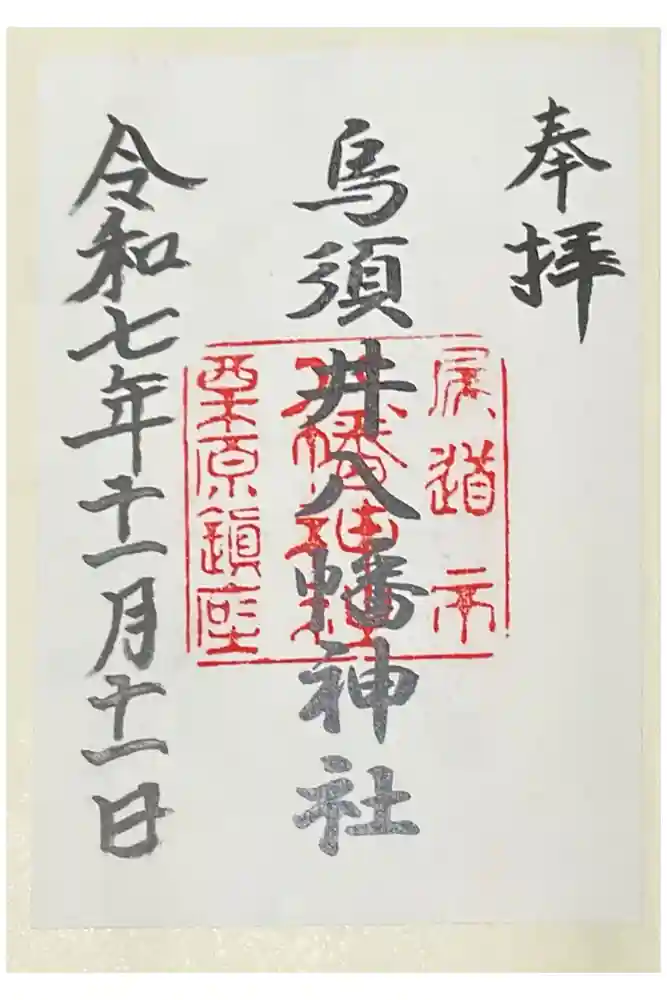 奉拝
烏須井八幡神社
尾道市
八幡神社
栗原鎮座
令和七年十一月十一日